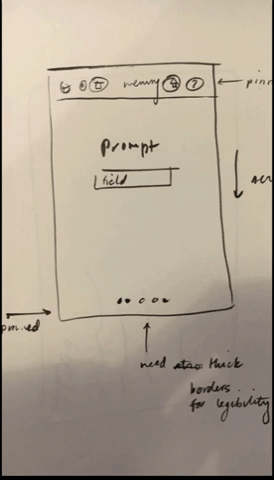 memory ?
Prompt
field
pinned
need also thick
borders
for legibility